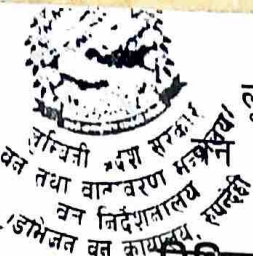 लुम्बिनी प्रदेश सरकार
वन तथा वातावरण मन्त्रालय
वन निर्देशनालय
डिभिजन वन कार्यालय, रुपन्देही